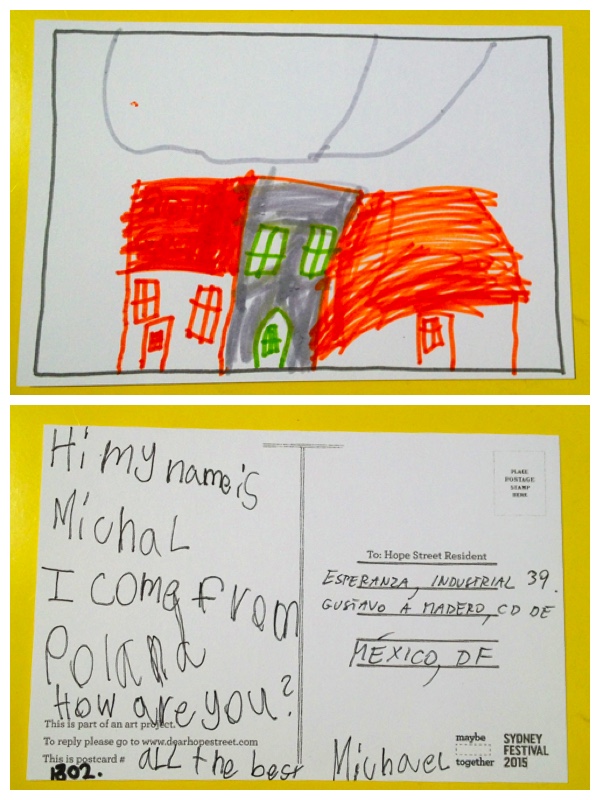 Hi my name is
Michal
I come from
Poland
How are you?
This is part of an art project.
To reply please go to www.dearhopestreet.com
This is postcard #
1302.
all the best
Michael
PLACE
POSTAGE
STAMP
HERE
To: Hope Street Resident
ESPERANZA, INDUSTRIAL 39.
GUSTAVO A MADERO, CD DE
MÉXICO, DF
maybe
together
SYDNEY
FESTIVAL
2015